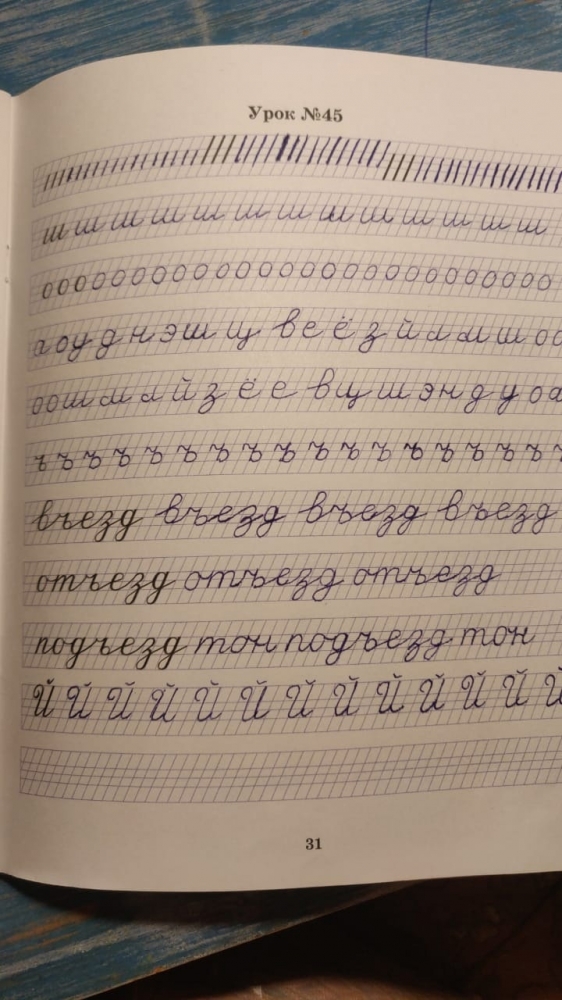 Урок №45
ш ш ш ш ш ш ш ш ш ш ш ш ш
о о о о о о о о о о о о о о о о о о о о о о о о о о
а о у д н э ш щ в е ё з й л м ш о о
о о ш м л й з ё е в щ ш э н д у о а
ъ ъ ъ ъ ъ ъ ъ ъ ъ ъ ъ ъ ъ ъ ъ ъ ъ ъ
въезд въезд въезд въезд
отъезд отъезд отъезд
подъезд тон подъезд тон
Й Й Й Й Й Й Й Й Й Й Й Й Й
31